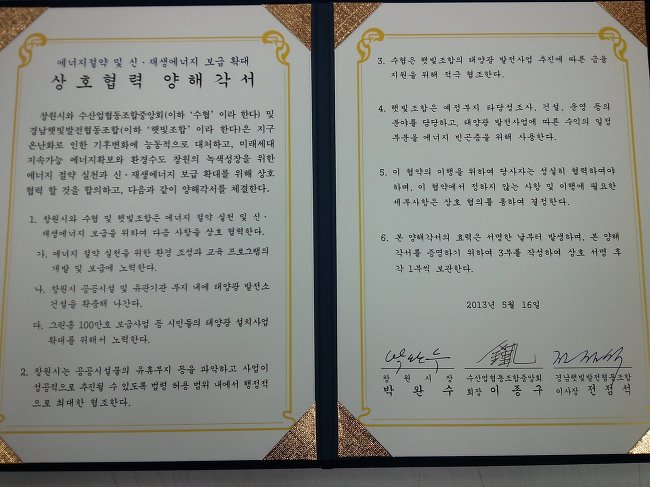 에너지절약 및 신·재생에너지 보급 확대
상호협력 양해각서
창원시와 수산업협동조합중앙회(이하 '수협' 이라 한다) 및
경남햇빛발전협동조합(이하 '햇빛조합' 이라 한다)은 지구
온난화로 인한 기후변화에 능동적으로 대처하고, 미래세대
지속가능 에너지확보와 환경수도 창원의 녹색성장을 위한
에너지 절약 실천과 신·재생에너지 보급 확대를 위해 상호
협력 할 것을 합의하고, 다음과 같이 양해각서를 체결한다.
1. 창원시와 수협 및 햇빛조합은 에너지 절약 실천 및 신·
재생에너지 보급을 위하여 다음 사항을 상호 협력한다.
가. 에너지 절약 실천을 위한 환경 조성과 교육 프로그램의
개발 및 보급에 노력한다.
나. 창원시 공공시설 및 유관기관 부지 내에 태양광 발전소
건설을 확충해 나간다.
다. 그린홈 100만호 보급사업 등 시민들의 태양광 설치사업
확대를 위해서 노력한다.
2. 창원시는 공공시설물의 유휴부지 등을 파악하고 사업이
성공적으로 추진될 수 있도록 법령 허용 범위 내에서 행정적
으로 최대한 협조한다.
3. 수협은 햇빛조합의 태양광 발전사업 추진에 따른 금융
지원을 위해 적극 협조한다.
4. 햇빛조합은 예정부지 타당성조사, 건설, 운영 등의
분야를 담당하고, 태양광 발전사업에 따른 수익의 일정
부분을 에너지 빈곤층을 위해 사용한다.
5. 이 협약의 이행을 위하여 당사자는 성실히 협력하여야
하며, 이 협약에서 정하지 않는 사항 및 이행에 필요한
세부사항은 상호 협의를 통하여 결정한다.
6. 본 양해각서의 효력은 서명한 날부터 발생하며, 본 양해
각서를 증명하기 위하여 3부를 작성하여 상호 서명 후
각 1부씩 보관한다.
2013년 5월 16일
창원시장 수산업협동조합중앙회 경남햇빛발전협동조합
박완수 회장 이종구 이사장 전점석